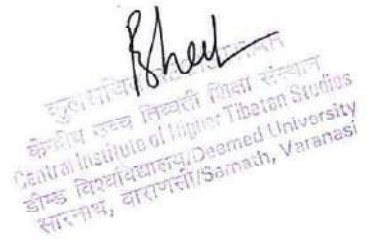 कुलसचिव
केन्द्रीय उच्च तिब्बती शिक्षा संस्थान
Central Institute of Higher Tibetan Studies
डीम्ड विश्वविद्यालय/Deemed University
सारनाथ, वाराणसी/Sarnath, Varanasi